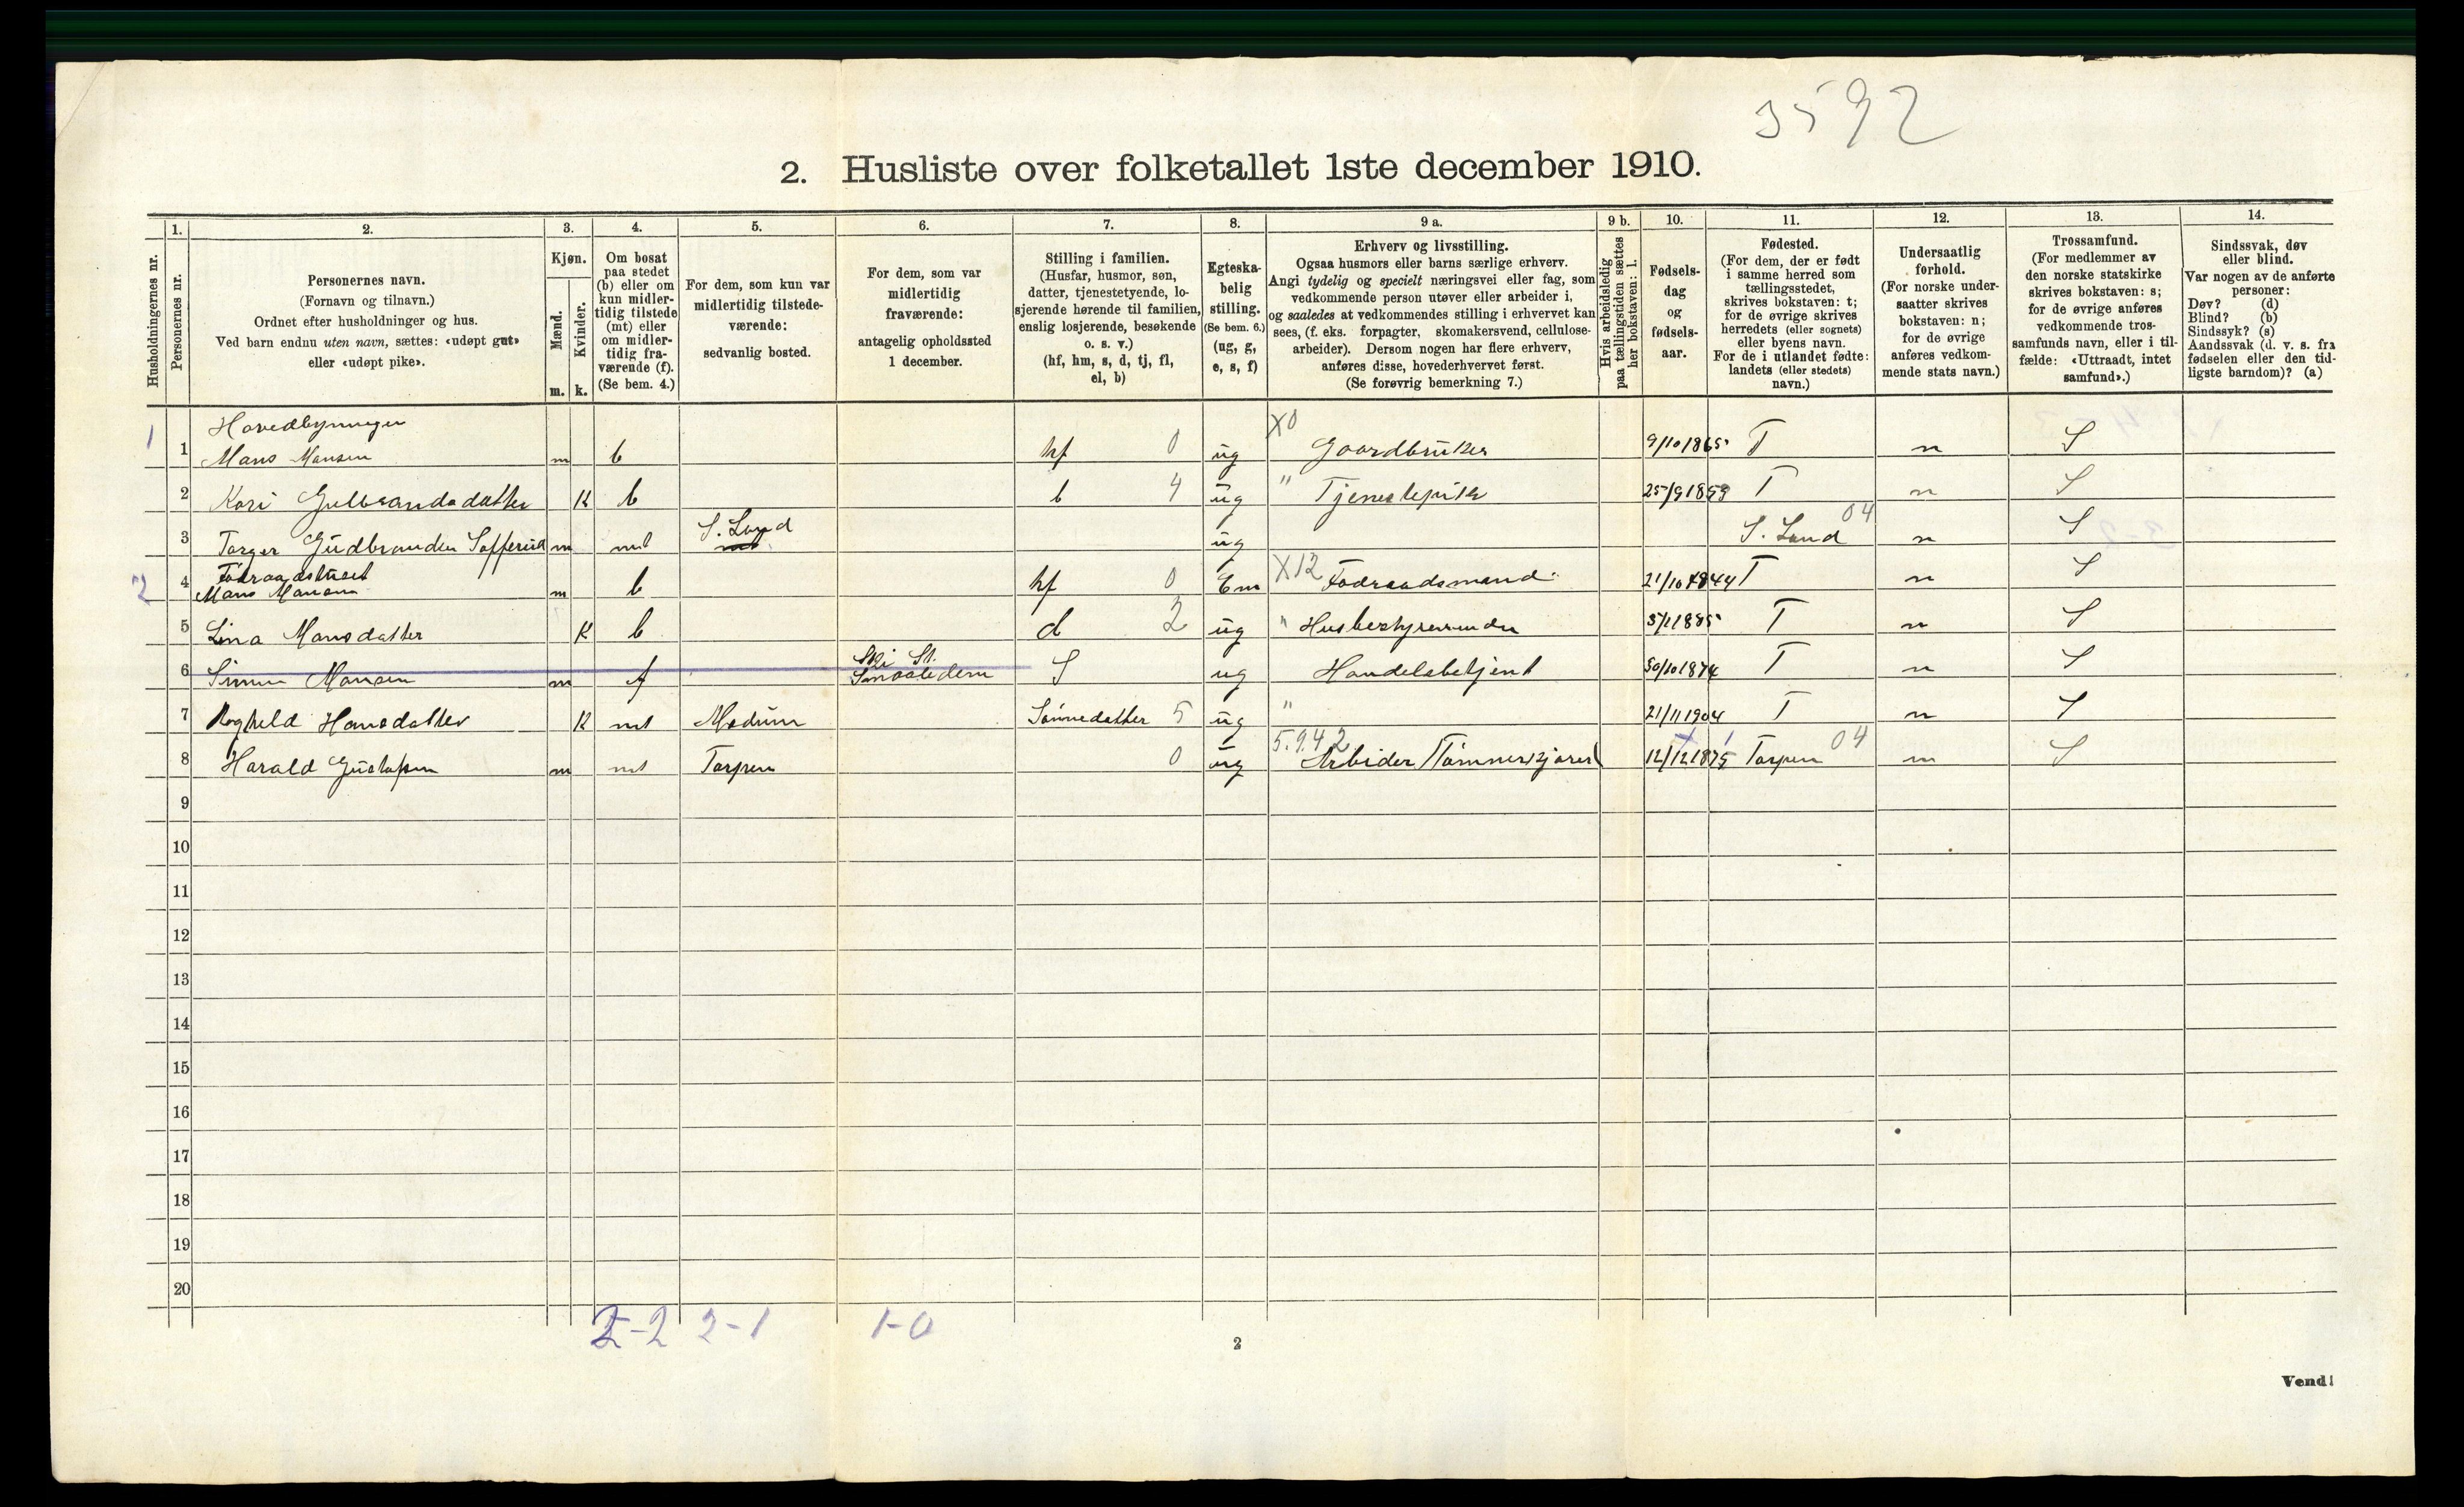 3592
2. Husliste over folketallet 1ste december 1910.
1. 2. 3. 4. 5. 6. 7. 8. 9 a. 9 b. 10. 11. 12. 13. 14.
Husholdningernes nr.
Personernes nr.
Personernes navn.
(Fornavn og tilnavn.)
Ordnet efter husholdninger og hus.
Ved barn endnu uten navn, sættes: «udøpt gut»
eller «udøpt pike».
Kjøn.
Mænd.
Kvinder.
m. k.
Om bosat
paa stedet
(b) eller om
kun midler-
tidig tilstede
(mt) eller
om midler-
tidig fra-
værende (f).
(Se bem. 4.)
For dem, som kun var
midlertidig tilstede-
værende:
sedvanlig bosted.
For dem, som var
midlertidig
fraværende:
antagelig opholdssted
1 december.
Stilling i familien.
(Husfar, husmor, søn,
datter, tjenestetyende, lo-
sjerende hørende til familien,
enslig losjerende, besøkende
o. s. v.)
(hf, hm, s, d, tj, fl,
el, b)
Egteska-
belig
stilling.
(Se bem. 6.)
(ug, g,
e, s, f)
Erhverv og livsstilling.
Ogsaa husmors eller barns særlige erhverv.
Angi tydelig og specielt næringsvei eller fag, som
vedkommende person utøver eller arbeider i,
og saaledes at vedkommendes stilling i erhvervet kan
sees, (f. eks. forpagter, skomakersvend, cellulose-
arbeider). Dersom nogen har flere erhverv,
anføres disse, hovederhvervet først.
(Se forøvrig bemerkning 7.)
Hvis arbeidsledig
paa tællingstiden sættes
her bokstaven: l.
Fødsels-
dag
og
fødsels-
aar.
Fødested.
(For dem, der er født
i samme herred som
tællingsstedet,
skrives bokstaven: t;
for de øvrige skrives
herredets (eller sognets)
eller byens navn.
For de i utlandet fødte:
landets (eller stedets)
navn.)
Undersaatlig
forhold.
(For norske under-
saatter skrives
bokstaven: n;
for de øvrige
anføres vedkom-
mende stats navn.)
Trossamfund.
(For medlemmer av
den norske statskirke
skrives bokstaven: s;
for de øvrige anføres
vedkommende tros-
samfunds navn, eller i til-
fælde: «Uttraadt, intet
samfund».)
Sindssvak, døv
eller blind.
Var nogen av de anførte
personer:
Døv? (d)
Blind? (b)
Sindssyk? (s)
Aandssvak (d. v. s. fra
fødselen eller den tid-
ligste barndom)? (a)
Hovedbyninger X0
1 1 Hans Hansen m b hf 0 ug Gaardbruker 9/10 1865 T n S
2 Kari Gulbrandsdatter K b b 4 ug " Tjenestepike 25/9 1853 T n S
S. Land 04
3 Torger Gudbrandsen m mt mt ug S. Land n S
Föraadstuet
2 4 Hans Hansen m b hf 0 Em X12 Födraadsmand 21/10 1844 T n S
5 Lina Hansdatter K b d 2 ug " Husbestyrerinde 3/1 1885 T n S
Ski St.
6 Simen Hansen m f Smaaledene S ug Handelsbetjent 30/10 1874 T n S
7 Ragnhild Hansdatter K mt Modum Sønnedatter 5 ug " 21/11 1904 T n S
5.9.42 04
8 Harald Gustafsen m mt Torpen 0 ug Arbider Tømmerkjører 12/12 1875 Torpen n S
9
10
11
12
13
14
15
16
17
18
19
20
2-2 2-1 1-0
2
Vend!